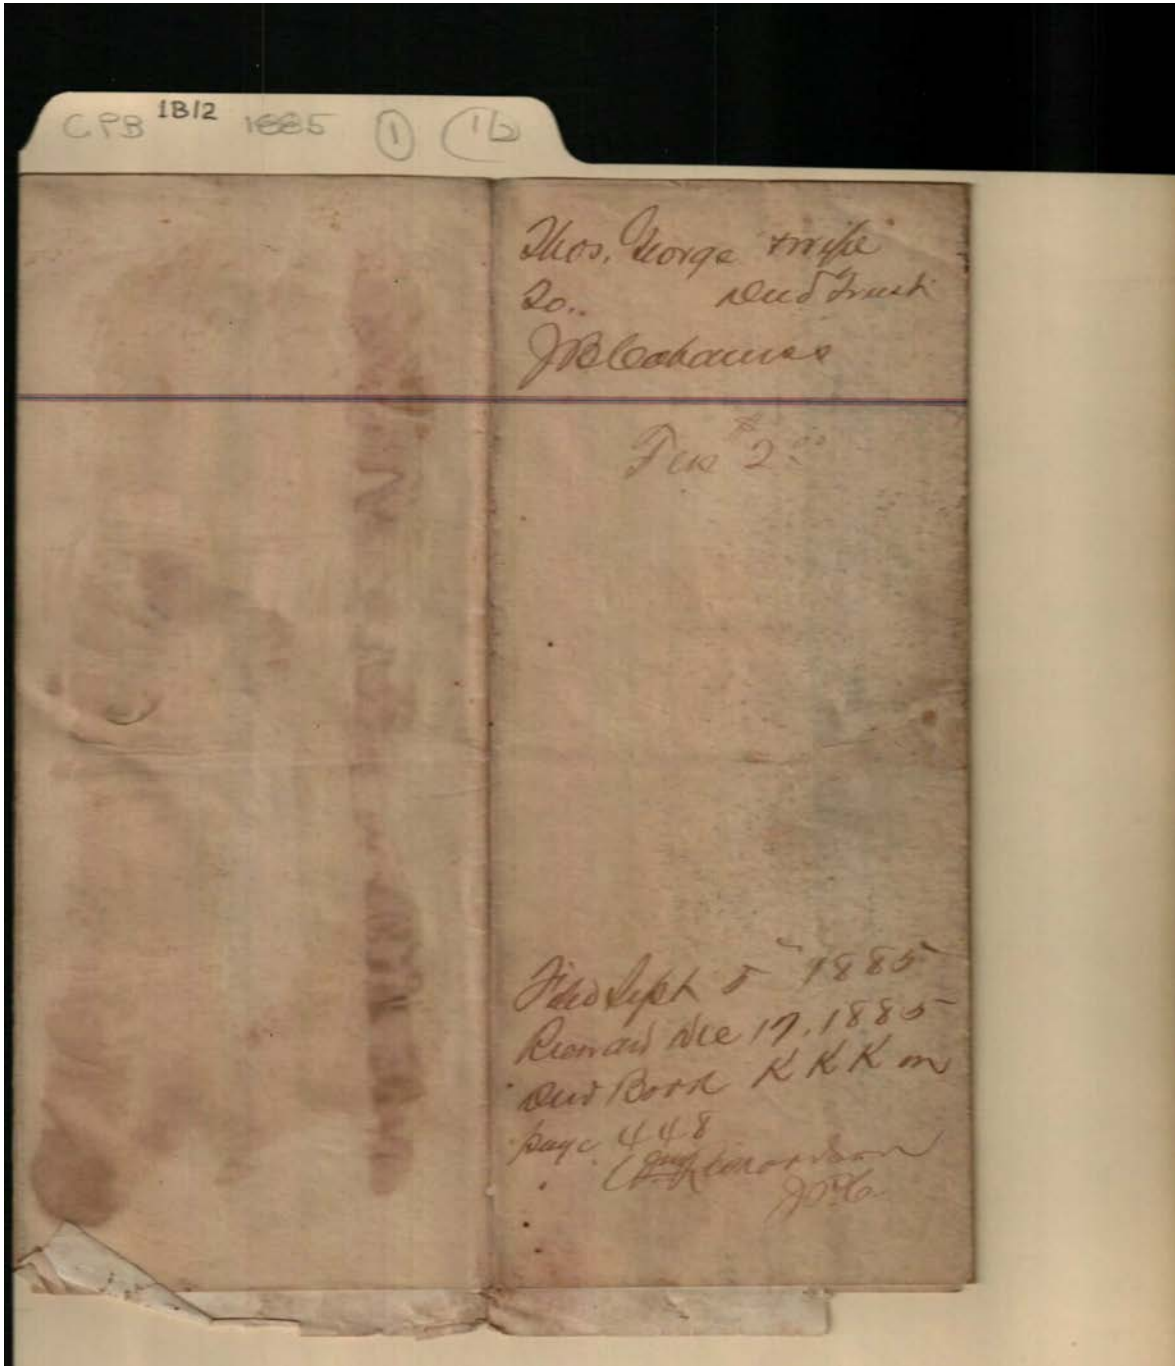 CPB 1B12 1885 ① (12)
Thos. George & wife
To.. Deed Trust
J B Cabaniss
Fees $2.00
Filed Sept 5" 1885
Record Dec 17, 1885
Deed Book K K K on
page 448